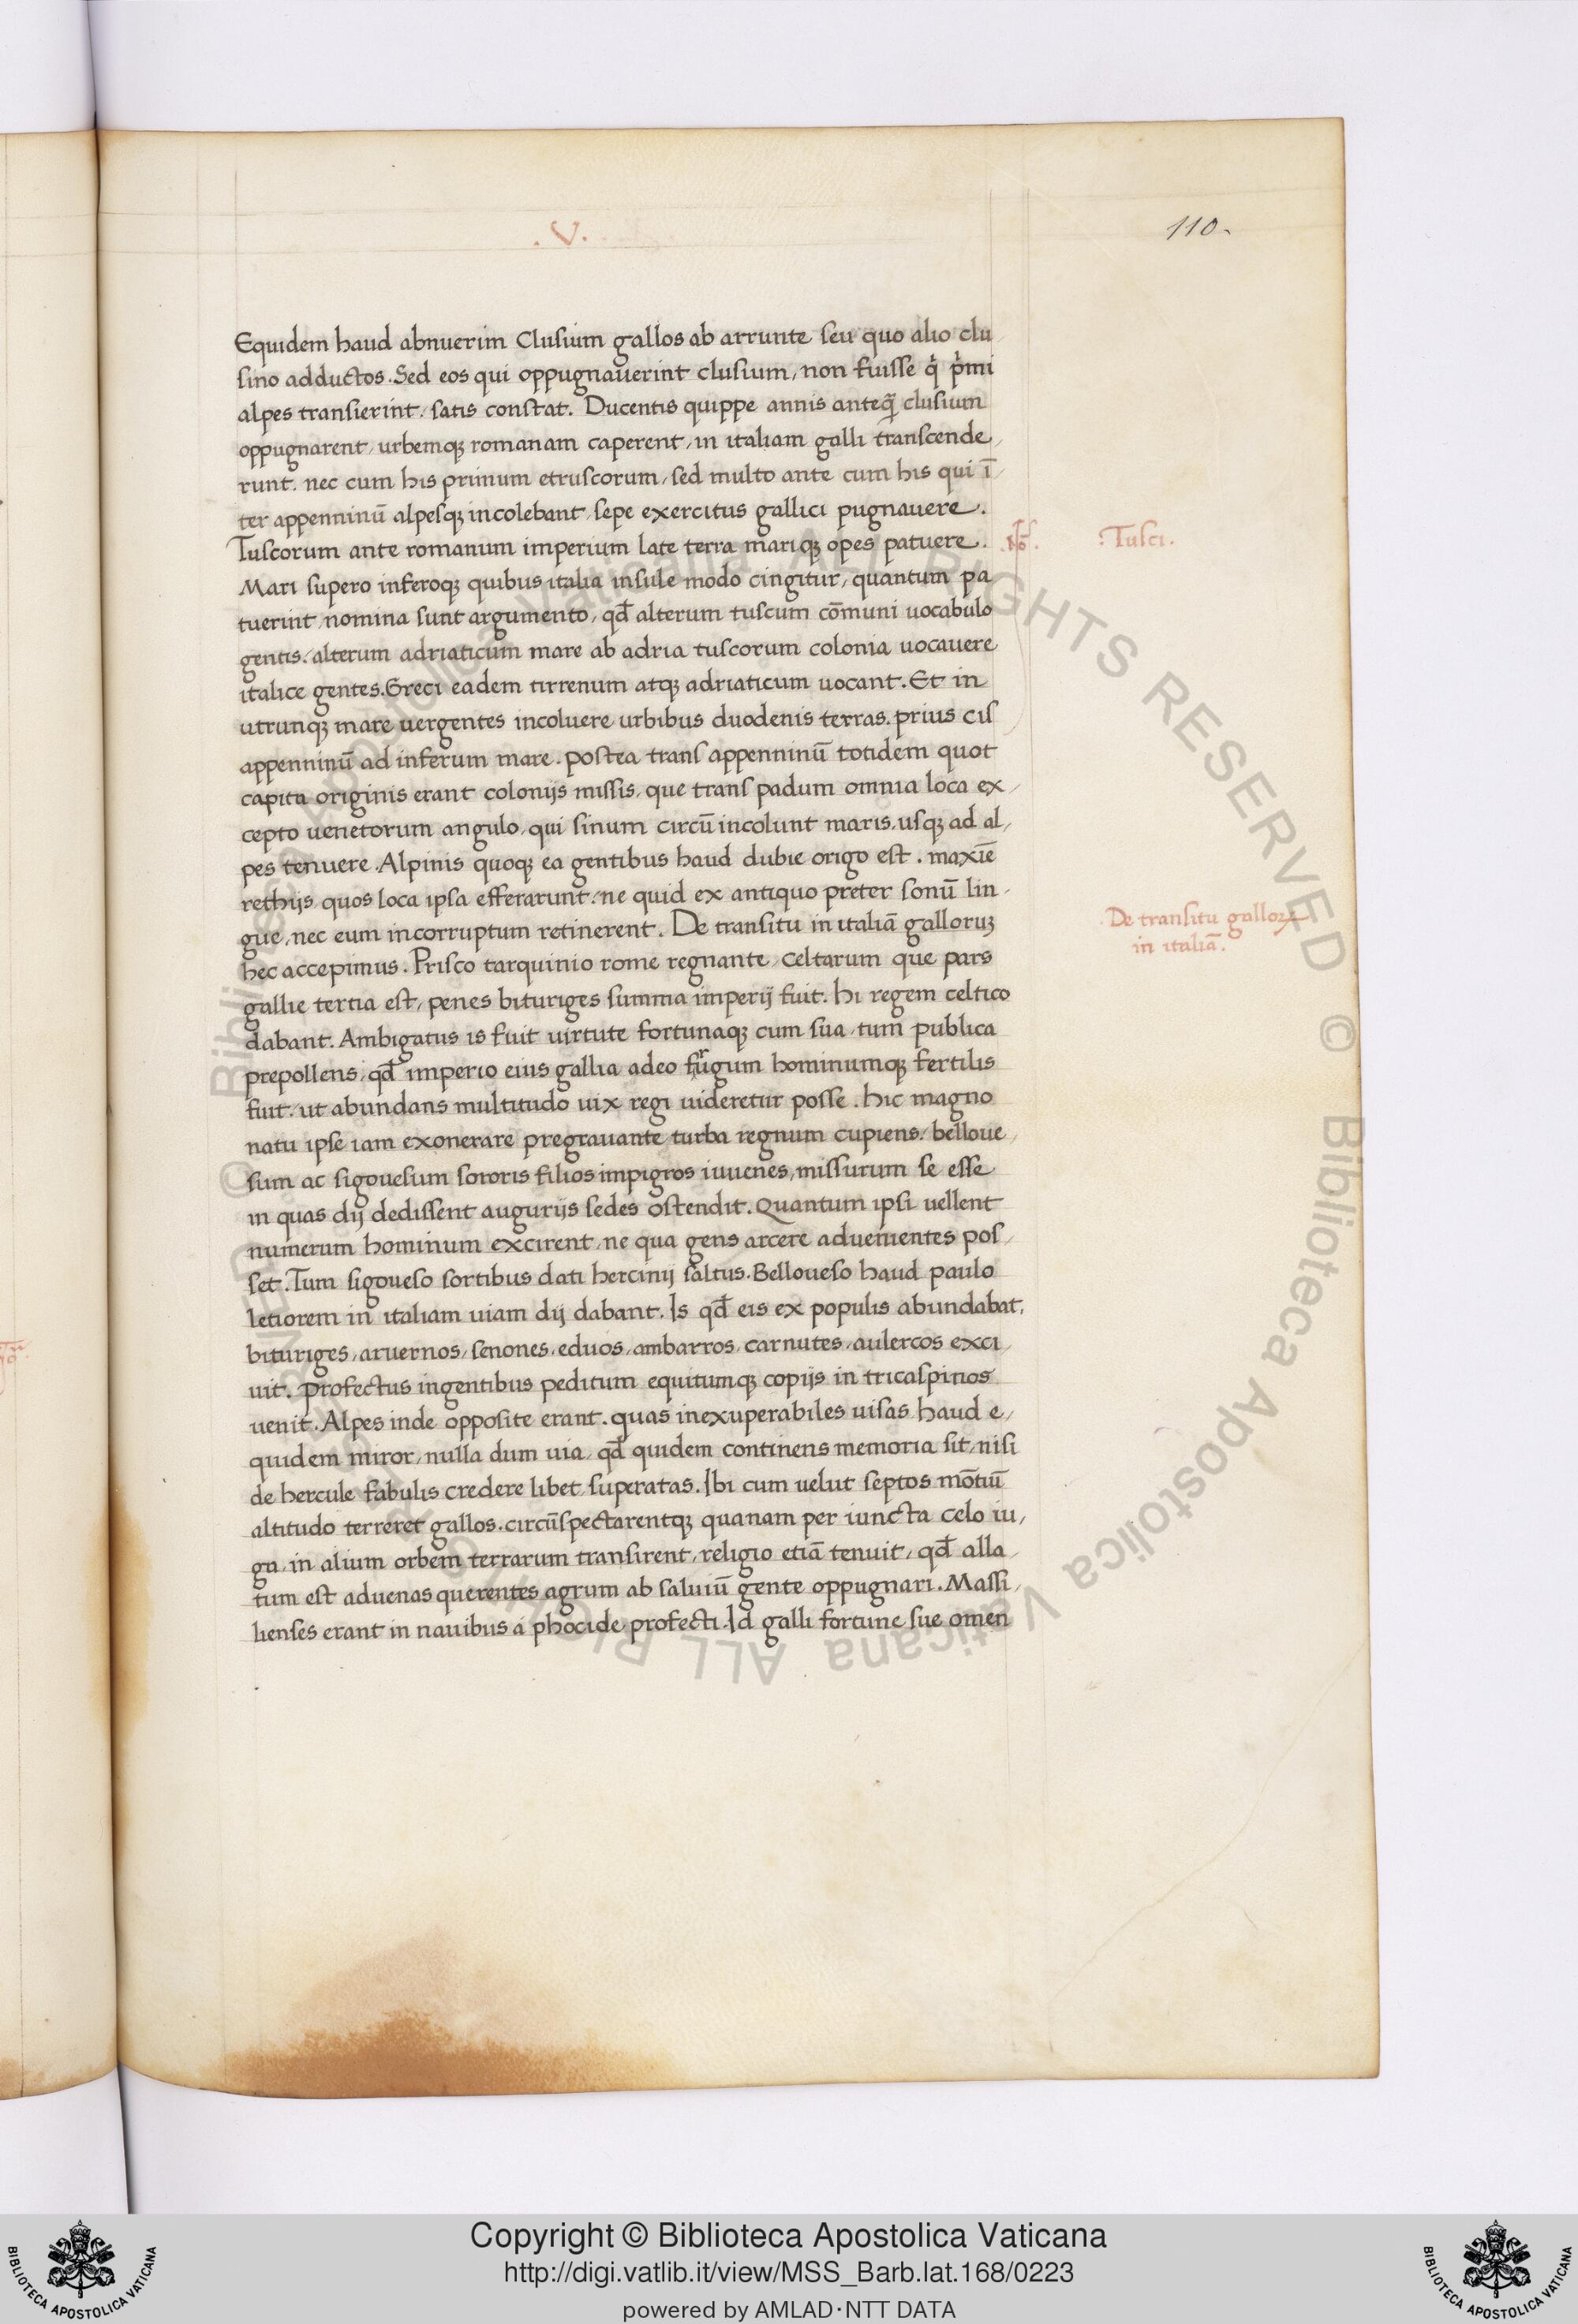 .V.
110.
Equidem haud abnuerim Clusium gallos ab arrunte seu quo alio clu
sino adductos. Sed eos qui oppugnauerint clusium, non fuisse q̇ pṁi
alpes transierint, satis constat. Ducentis quippe annis anteq̃ clusium
oppugnarent, urbemq; romanam caperent, in italiam galli transcende
runt. nec cum his primum etruscorum, sed multo ante cum his qui ī
ter appenninū alpesq; incolebant, sepe exercitus gallici pugnauere.
Tuscorum ante romanum imperium late terra mariq; opes patuere.
: Tusci.
Mari supero inferoq; quibus italia insule modo cingitur, quantum pa
tuerint, nomina sunt argumento, qđ alterum tuscum cōmuni uocabulo
gentis, alterum adriaticum mare ab adria tuscorum colonia uocauere
italice gentes. Greci eadem tirrenum atq; adriaticum uocant. Et in
utrunq; mare uergentes incoluere urbibus duodenis terras. prius cis
appenninū ad inferum mare. postea trans appenninū totidem quot
capita originis erant colonijs missis, que trans padum omnia loca ex
cepto uenetorum angulo, qui sinum circū incolunt maris, usq; ad al,
pes tenuere. Alpinis quoq; ea gentibus haud dubie origo est. maxīe
rethijs quos loca ipsa efferarunt, ne quid ex antiquo preter sonū lin
gue, nec eum incorruptum retinerent. De transitu in italiā galloruʒ
De transitu galloꝝ
in italiā.
hec accepimus. Prisco tarquinio rome regnante, celtarum que pars
gallie tertia est, penes bituriges summa imperij fuit. hi regem celtico
dabant. Ambigatus is fuit uirtute fortunaq; cum sua, tum publica
prepollens, qđ imperio eius gallia adeo frugum hominumq; fertilis
fuit, ut abundans multitudo uix regi uideretur posse. hic magno
natu ipse iam exonerare pregrauante turba regnum cupiens, belloue
sum ac sigouesum sororis filios impigros iuuenes, missurum se esse
in quas dij dedissent augurijs sedes ostendit. Quantum ipsi uellent
numerum hominum excirent, ne qua gens arcere aduenientes pos
set. Tum sigoueso sortibus dati hercinij saltus. Belloueso haud paulo
letiorem in italiam uiam dij dabant. Is qđ eis ex populis abundabat,
bituriges, aruernos, senones, eduos, ambarros, carnutes, aulercos exci
uit. profectus ingentibus peditum equitumq; copijs in tricaspinos
uenit. Alpes inde opposite erant. quas inexuperabiles uisas haud e,
quidem miror, nulla dum uia, qđ quidem continens memoria sit, nisi
de hercule fabulis credere libet, superatas. Ibi cum uelut septos mōtiū
altitudo terreret gallos. circūspectarentq; quanam per iuncta celo iu,
ga, in alium orbem terrarum transirent, religio etiā tenuit, qđ alla
tum est aduenas querentes agrum ab saluiū gente oppugnari. Massi
lienses erant in nauibus a phocide profecti. Id galli fortune sue omen
© Biblioteca Apostolica Vaticana ALL RIGHTS RESERVED © Biblioteca Apostolica Vaticana ALL RIGHTS RESERVED
Copyright © Biblioteca Apostolica Vaticana
http://digi.vatlib.it/view/MSS_Barb.lat.168/0223
powered by AMLAD·NTT DATA
BIBLIOTECA APOSTOLICA VATICANA
BIBLIOTECA APOSTOLICA VATICANA